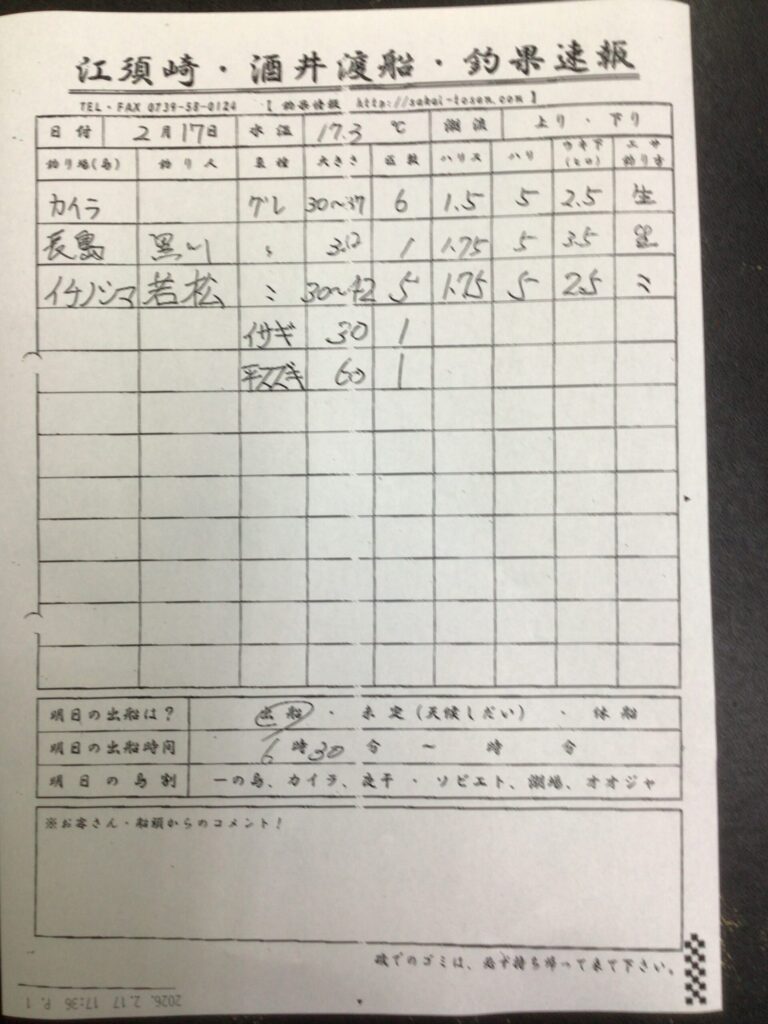 江須崎・酒井渡船・釣果速報
TEL・FAX 0739-58-0124 【 釣果情報 http://sakai-tosen.com 】
日付 2月17日 水温 17.3 ℃ 潮流 上り・下り
釣り場(島) 釣り人 魚種 大きさ 匹数 ハリス ハリ ウキ下(ヒロ) エサ釣り方
カイラ グレ 30〜37 6 1.5 5 2.5 生
長島 黒川 〃 32 1 1.75 5 3.5
イチノシマ 若松 〃 30〜42 5 1.75 5 2.5 〃
イサギ 30 1
平スズキ 60 1
明日の出船は? 出船 ・ 未定(天候しだい) ・ 休船
明日の出船時間 6時30分 〜 時 分
明日の島割 一の島、カイラ、沈干・ソビエト、潮場、オオジャ
※お客さん・船頭からのコメント!
磯でのゴミは、必ず持ち帰って来て下さい。
2026. 2.17 17:36 P. 1